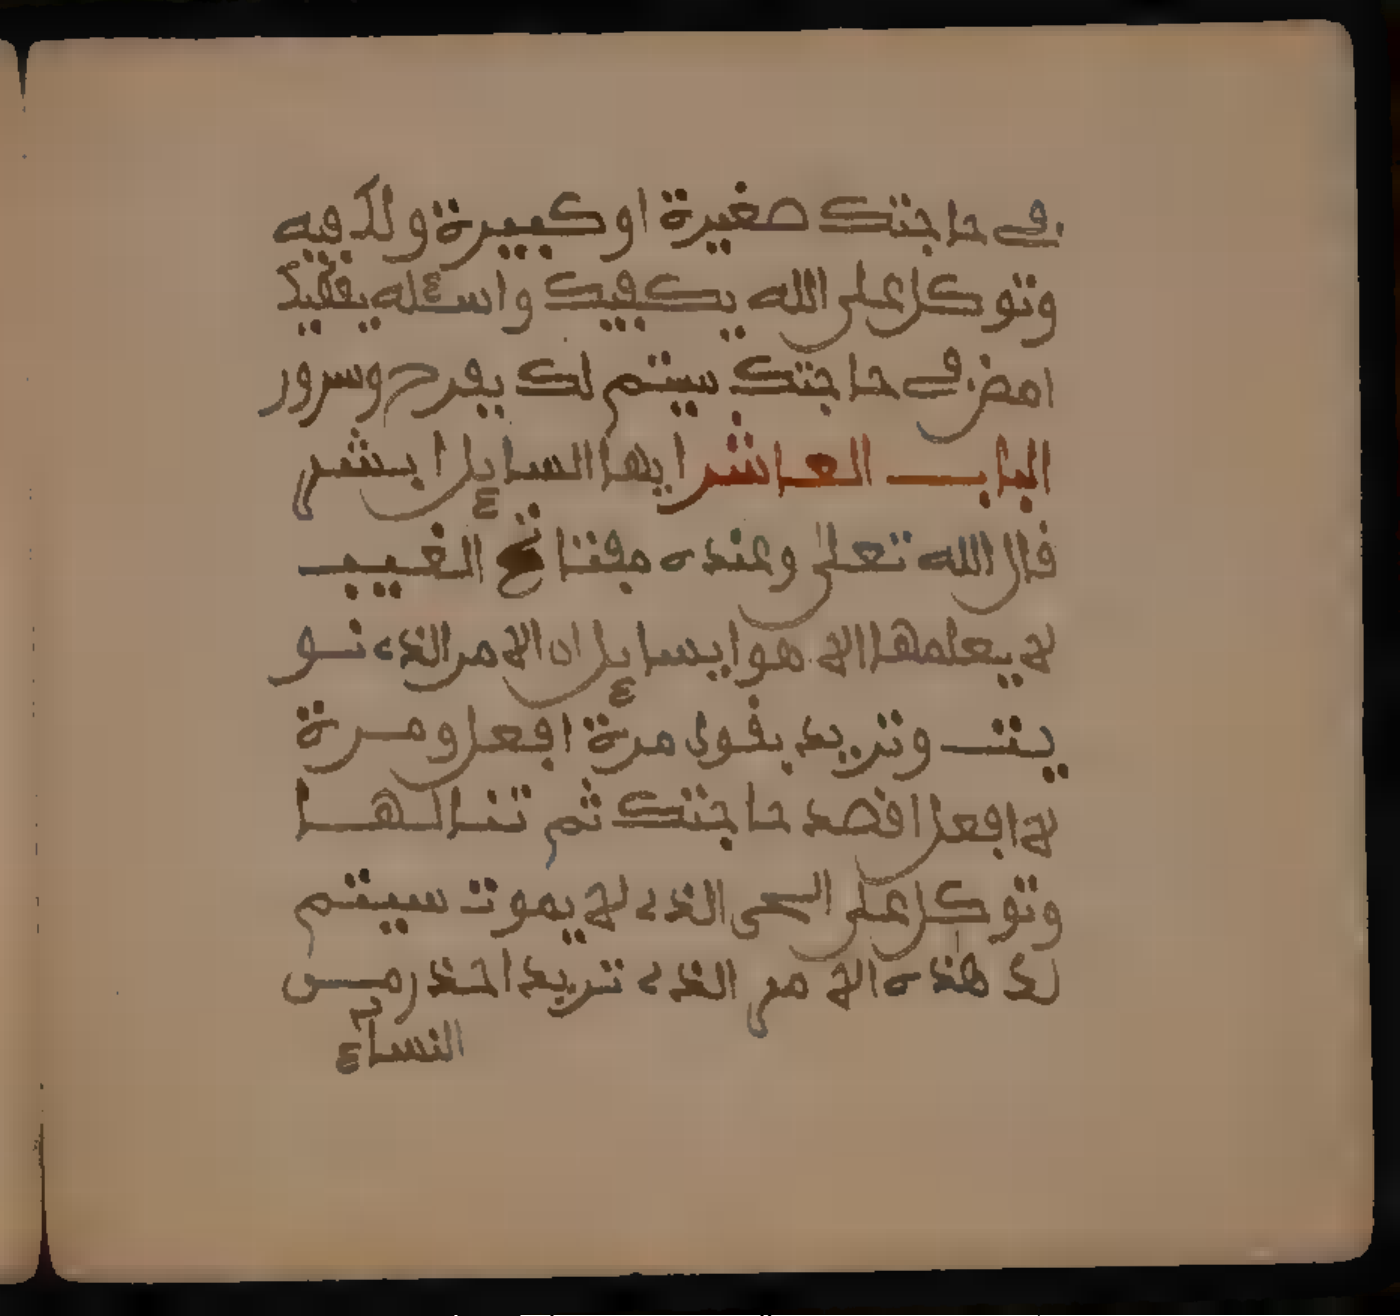 في حاجتك صغيرة او كبيرة ولك فيه
وتوكل على الله يكفيك واسئله يقيك
امض في حاجتك سيتم لك بفرح وسرور
الباب العاشر ايها السايل ابشر
قال الله تعلى وعنده مفتاح الغيب
لا يعلمها الا هو ايسايل ان الامر الذي نو
يت وتريد يقول مرة افعل ومرة
لا افعل اقصد حاجتك ثم تنالها
وتوكل على الحي الذي لا يموت سيتم
لك هذه الامر الذي تريد اخذ من
النساء